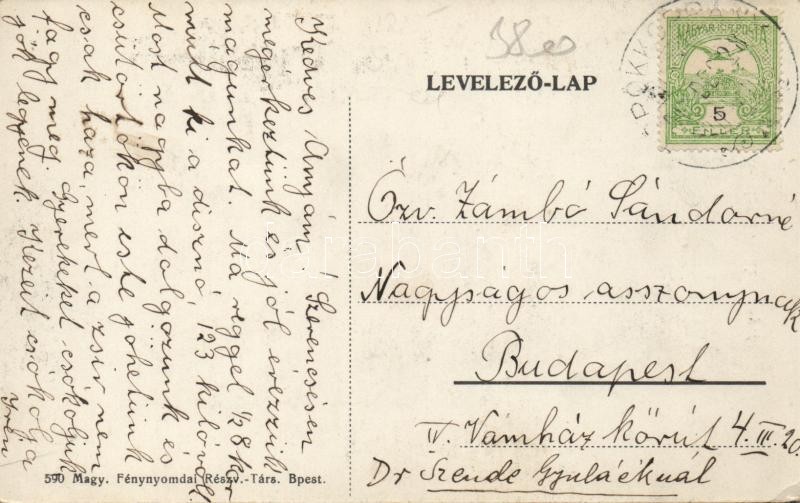 38 es
LEVELEZŐ-LAP
MAGYAR KIR. POSTA
5
FILLÉR
Kedves Anyám! Szerencsésen
megérkeztünk és jól érezzük
magunkat. Ma reggel 1/2 8 kor
múlt ki a disznó 123 kilóval
Most nagyba dolgozunk és
csütörtökön este jöhetünk
csak haza, mert a zsir nem
fagy meg. Gyerekeket csókoljuk
jók legyenek. Kezeit csókolja
Irén
Özv. Zámbó Sándorné
Nagyságos asszonynak
Budapest
IV. Vámház körút 4. III. 20
Dr Szende Gyuláéknál
590 Magy. Fénynyomdai Részv.-Társ. Bpest.